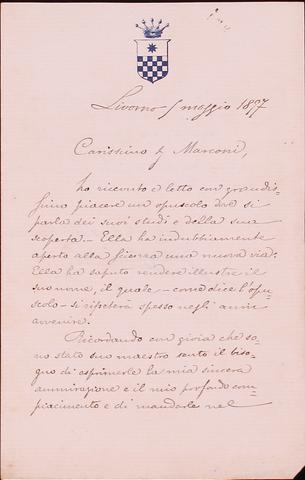 Livorno 5 maggio 1897
Carissimo Sg Marconi,
ho ricevuto e letto con grandis=
simo piacere un opuscolo dove si
parla dei suoi studi e della sua
scoperta. — Ella ha indubbiamente
aperto alla scienza una nuova via.
Ella ha saputo rendere illustre il
suo nome, il quale — come dice l'opu=
scolo — si ripeterà spesso negli anni
avvenire.
Ricordando con gioia che so=
no stato suo maestro sento il biso=
gno di esprimerle la mia sincera
ammirazione e il mio profondo com=
piacimento e di mandarle nel